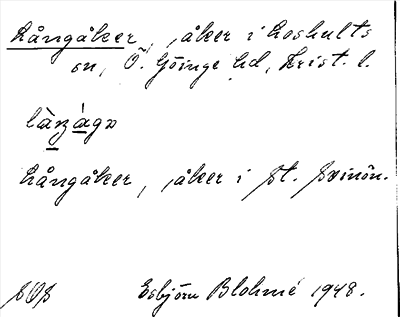 Långåker, åker i Loshults
sn, Ö. Göinge hd, Krist. l.
Långåker, åker i St. Svinön.
SOS Esbjörn Blohmé 1948.